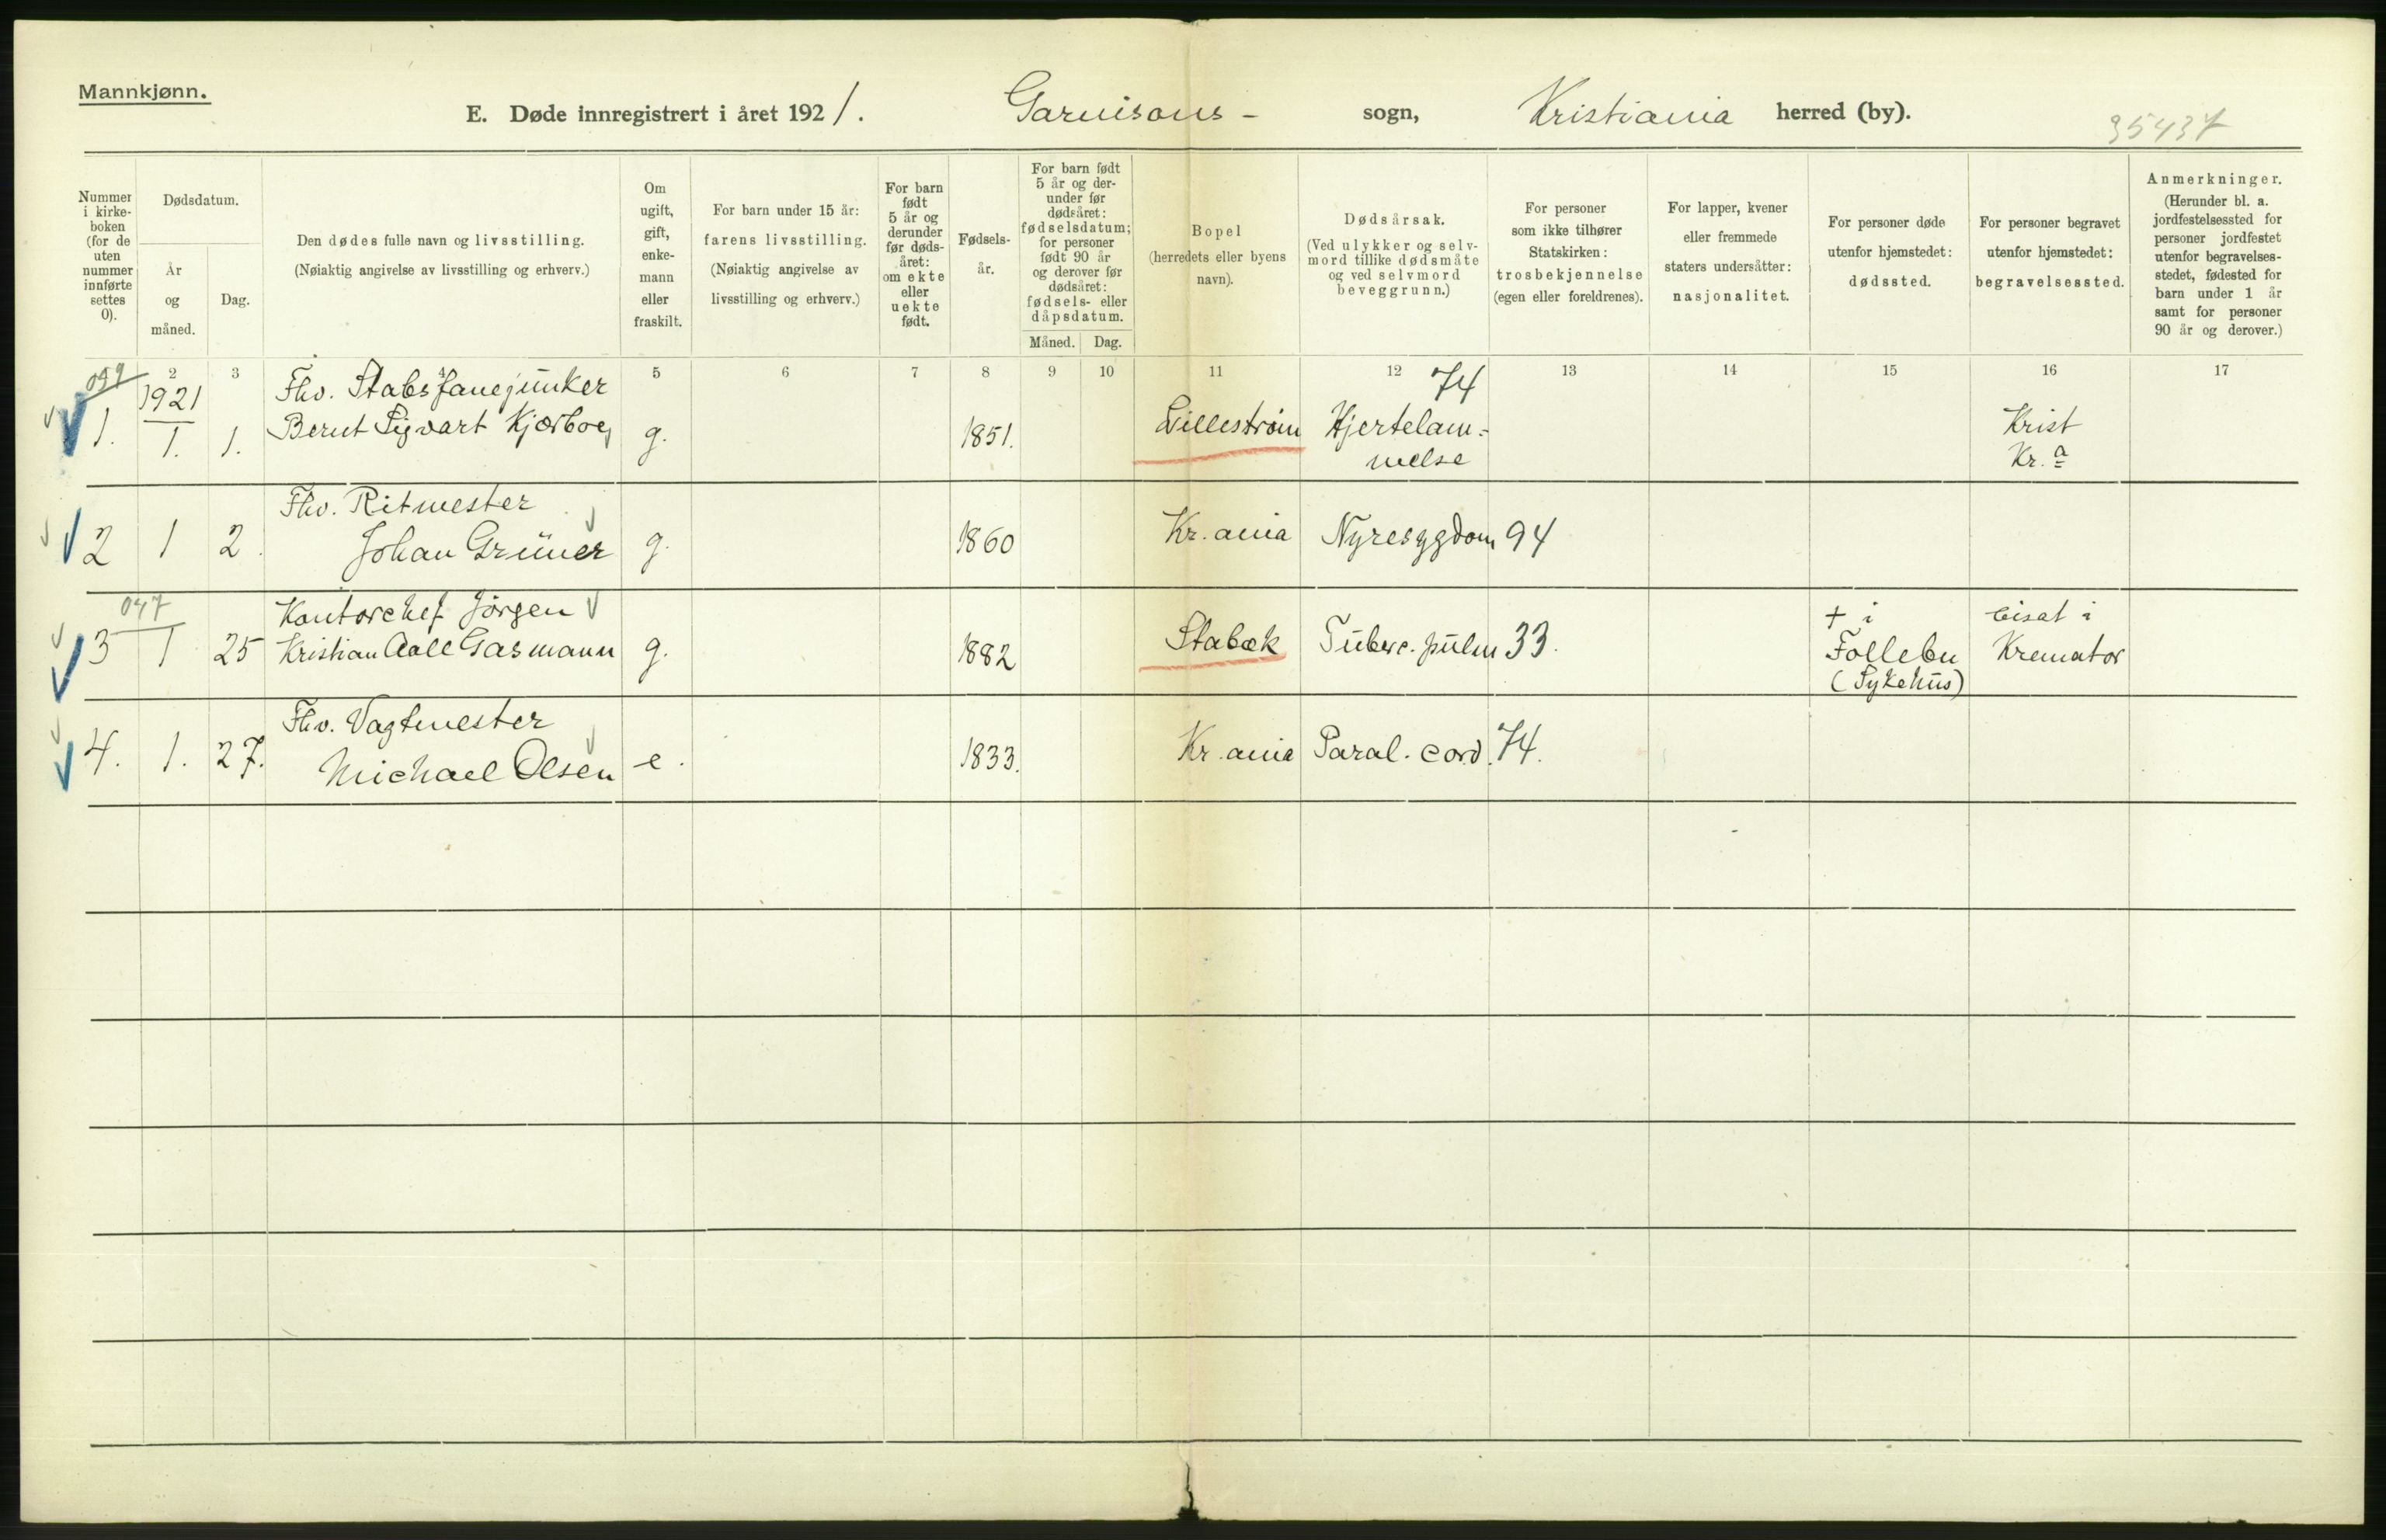 Mannkjønn.
E. Døde innregistrert i året 1921. Garnisons- sogn, Kristiania herred (by).
35437
Nummer i kirkeboken (for de uten nummer innførte settes 0).
Dødsdatum.
År og måned.
Dag.
Den dødes fulle navn og livsstilling.
(Nøiaktig angivelse av livsstilling og erhverv.)
Om ugift, gift, enkemann eller fraskilt.
For barn under 15 år: farens livsstilling.
(Nøiaktig angivelse av livsstilling og erhverv.)
For barn født 5 år og derunder før dødsåret: om ekte eller uekte født.
Fødselsår.
For barn født 5 år og derunder før dødsåret: fødselsdatum; for personer født 90 år og derover før dødsåret: fødsels- eller dåpsdatum.
Måned. Dag.
Bopel (herredets eller byens navn).
Dødsårsak.
(Ved ulykker og selvmord tillike dødsmåte og ved selvmord beveggrunn.)
For personer som ikke tilhører Statskirken: trosbekjennelse (egen eller foreldrenes).
For lapper, kvener eller fremmede staters undersåtter: nasjonalitet.
For personer døde utenfor hjemstedet: dødssted.
For personer begravet utenfor hjemstedet: begravelsessted.
Anmerkninger.
(Herunder bl. a. jordfestelsessted for personer jordfestet utenfor begravelsesstedet, fødested for barn under 1 år samt for personer 90 år og derover.)
2 3 4 5 6 7 8 9 10 11 12 13 14 15 16 17
1. 1921 1. 1. Fhv. Stabsfanejunker
Bernt Sigvart Kjørboe g. 1851. Lillestrøm Hjertelam-
melse 74 Krist
Kr.a
2 1 2. Fhv. Ritmester
Johan Grüner g. 1860 Kr.ania Nyresygdom 94
047
3 1 25 Kontorchef Jørgen
Kristian Aall Gasmann g. 1882 Stabæk Tuberc. pulm 33. + i
Follebu
(Sykehus) bisat i
Kremator
4. 1. 27. Fhv. Vagtmester
Michael Olsen e. 1833. Kr.ania Paral. cord. 74.